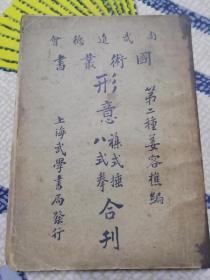 尚武進德會
國術叢書
第二種姜容樵編
形意雜式捶八式拳合刊
上海武學書局發行